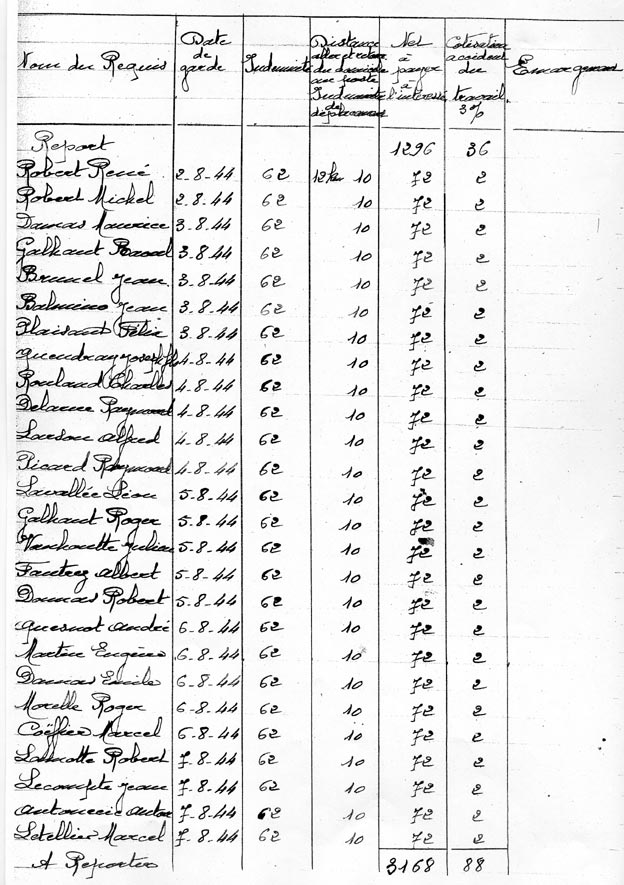 Nom du Requis | Date de garde | Indemnité | Distance aller et retour du domicile au poste Indemnité de déplacement | Net à payer à l'intéressé | Cotisation accident du travail 3% | Emargement
Report 1296 36
Robert René 2-8-44 62 12 km 10 72 2
Robert Michel 2-8-44 62 10 72 2
Dumas Maurice 3-8-44 62 10 72 2
Galhaut 3-8-44 62 10 72 2
Brunel Jean 3-8-44 62 10 72 2
Balmino Jean 3-8-44 62 10 72 2
Plaisant Félix 3-8-44 62 10 72 2
Joseph 4-8-44 62 10 72 2
Roulaud Charles 4-8-44 62 10 72 2
Delarue Raymond 4-8-44 62 10 72 2
Alfred 4-8-44 62 10 72 2
Picard Raymond 4-8-44 62 10 72 2
Lavallée Léon 5-8-44 62 10 72 2
Galhaut Roger 5-8-44 62 10 72 2
Julien 5-8-44 62 10 72 2
Fautrez Albert 5-8-44 62 10 72 2
Dumas Robert 5-8-44 62 10 72 2
Quesnot André 6-8-44 62 10 72 2
Martin Eugène 6-8-44 62 10 72 2
Dumas Emile 6-8-44 62 10 72 2
Morelle Roger 6-8-44 62 10 72 2
Coëffier Marcel 6-8-44 62 10 72 2
Lamotte Robert 7-8-44 62 10 72 2
Lecompte Jean 7-8-44 62 10 72 2
7-8-44 62 10 72 2
Letellier Marcel 7-8-44 62 10 72 2
A Reporter 3168 88